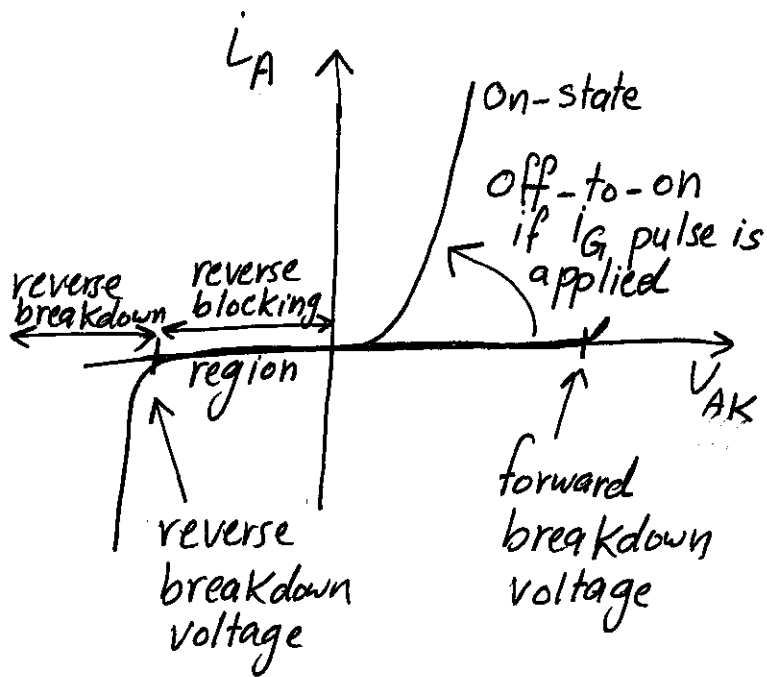 i_A
On-state
Off-to-on
if i_G pulse is
applied
reverse
breakdown
reverse
blocking
region
V_AK
reverse
breakdown
voltage
forward
breakdown
voltage